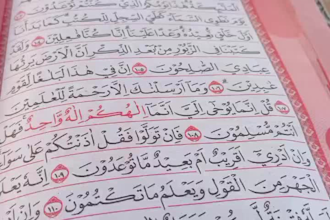 هَٰذَا يَوْمُكُمُ ٱلَّذِى كُنتُمْ تُوعَدُونَ ١٠٣
يَوْمَ نَطْوِى ٱلسَّمَآءَ كَطَىِّ ٱلسِّجِلِّ لِلْكُتُبِ كَمَا بَدَأْنَآ
أَوَّلَ خَلْقٍ نُّعِيدُهُۥ وَعْدًا عَلَيْنَآ إِنَّا كُنَّا فَٰعِلِينَ ١٠٤ وَلَقَدْ
كَتَبْنَا فِى ٱلزَّبُورِ مِنۢ بَعْدِ ٱلذِّكْرِ أَنَّ ٱلْأَرْضَ يَرِثُهَا
عِبَادِىَ ٱلصَّٰلِحُونَ ١٠٥ إِنَّ فِى هَٰذَا لَبَلَٰغًا لِّقَوْمٍ
عَٰبِدِينَ ١٠٦ وَمَآ أَرْسَلْنَٰكَ إِلَّا رَحْمَةً لِّلْعَٰلَمِينَ
١٠٧ قُلْ إِنَّمَا يُوحَىٰٓ إِلَىَّ أَنَّمَآ إِلَٰهُكُمْ إِلَٰهٌ وَٰحِدٌ فَهَلْ
أَنتُم مُّسْلِمُونَ ١٠٨ فَإِن تَوَلَّوْا۟ فَقُلْ ءَاذَنتُكُمْ عَلَىٰ سَوَآءٍ
وَإِنْ أَدْرِىٓ أَقَرِيبٌ أَم بَعِيدٌ مَّا تُوعَدُونَ ١٠٩ إِنَّهُۥ يَعْلَمُ
ٱلْجَهْرَ مِنَ ٱلْقَوْلِ وَيَعْلَمُ مَا تَكْتُمُونَ ١١٠ وَإِنْ